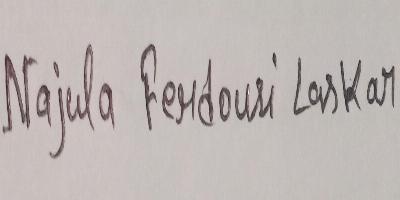 Najula Ferdousi Laskar